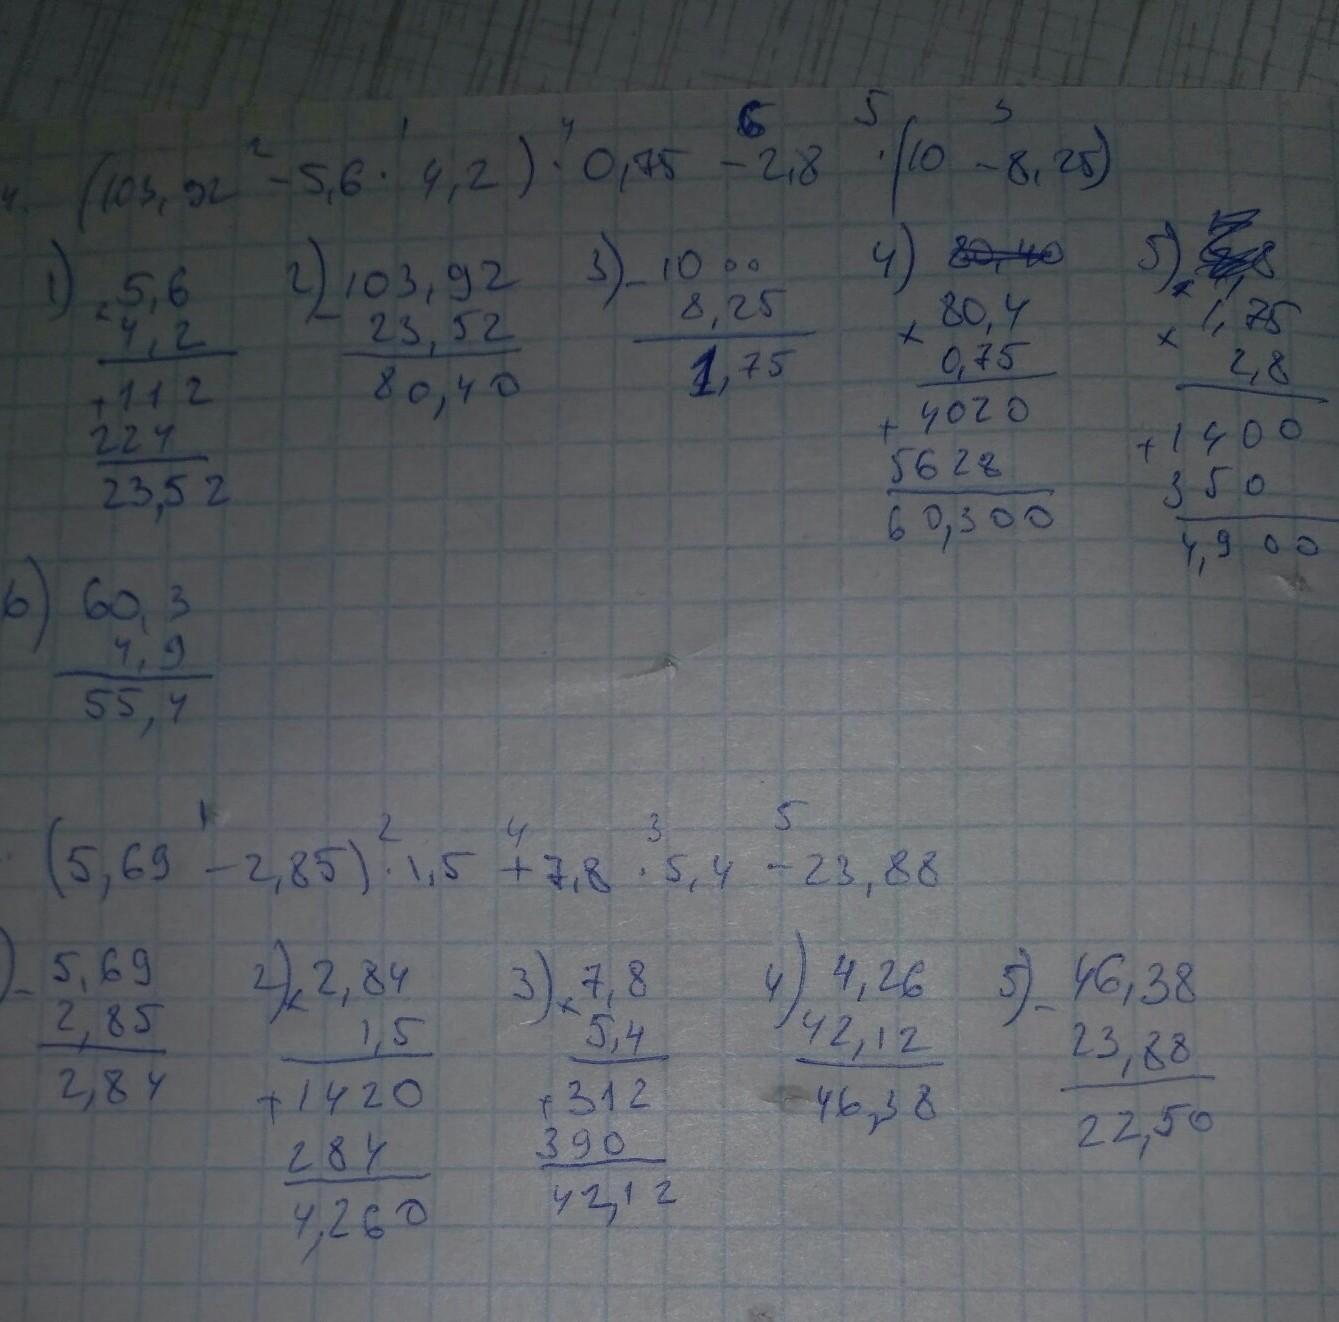 4. (103,92 - 5,6 · 4,2) · 0,75 - 2,8 · (10 - 8,25)
2 1 4 6 5 3
1) × 5,6
4,2
+ 112
224
23,52
2) - 103,92
23,52
80,40
3) - 10 00
8,25
1,75
4) 80,40
× 80,4
0,75
+ 4020
5628
60,300
5) × 1,75
2,8
+ 1400
350
4,900
6) 60,3
4,9
55,4
(5,69 - 2,85) · 1,5 + 7,8 · 5,4 - 23,88
1 2 4 3 5
) - 5,69
2,85
2,84
2) × 2,84
1,5
+ 1420
284
4,260
3) × 7,8
5,4
+ 312
390
42,12
4) 4,26
42,12
46,38
5) - 46,38
23,88
22,50